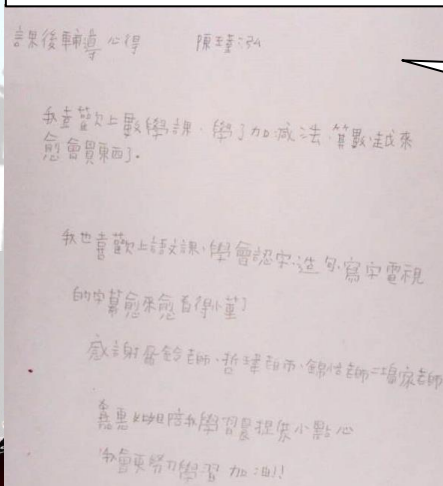 課後輔導心得 陳
我喜歡上數學課、學了加減法、算數、越來
愈會買東西了。
我也喜歡上語文課、學會認字、造句、寫字電視
的字幕愈來愈看得小董了
感謝 鈴老師、哲瑋 錦信老師 老師
嘉惠姐姐陪我學習 提供小點心
我會更努力學習 加油!!